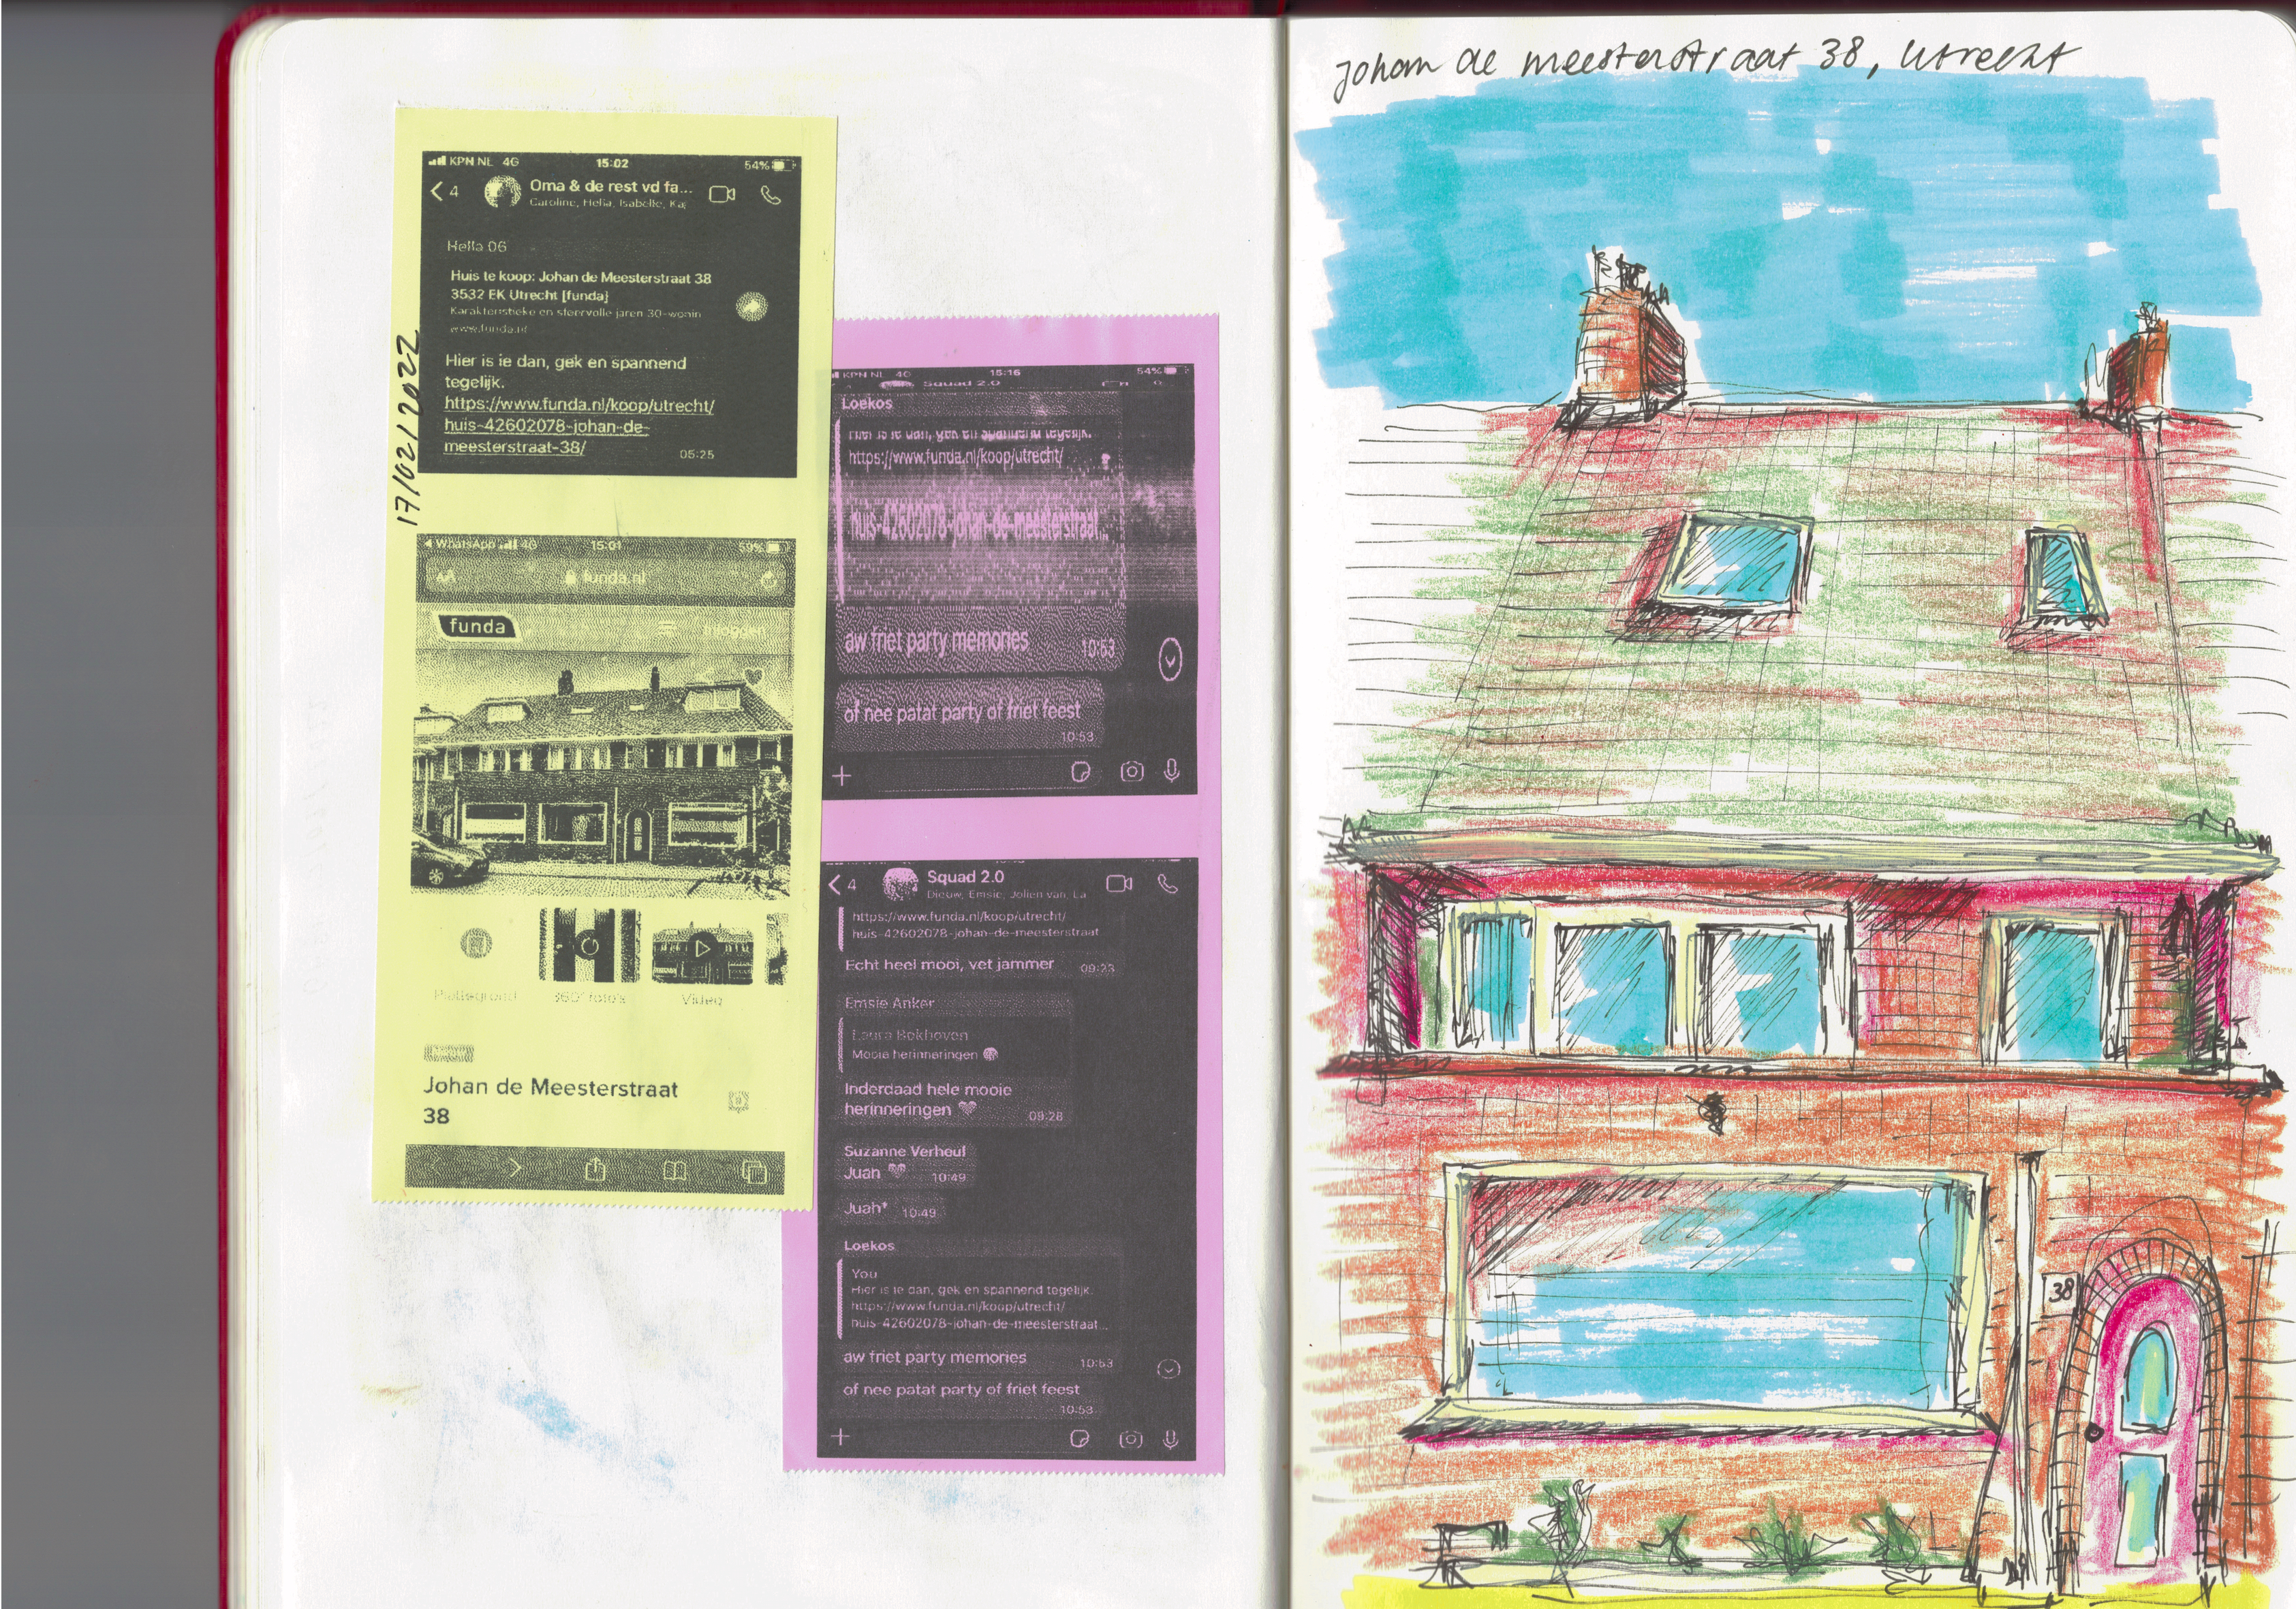 17/02/2022
KPN NL 4G 15:02 54%
4 Oma & de rest vd fa...
Caroline, Hella, Isabelle, Kaj
Hella 06
Huis te koop: Johan de Meesterstraat 38
3532 EK Utrecht [funda]
Karakteristieke en sfeervolle jaren 30-wonin
www.funda.nl
Hier is ie dan, gek en spannend
tegelijk.
https://www.funda.nl/koop/utrecht/
huis-42602078-johan-de-
meesterstraat-38/
05:25
WhatsApp 4G 15:01 59%
AA funda.nl
funda
Inloggen
Plattegrond 360° foto's Video
Johan de Meesterstraat
38
KPN NL 4G 15:16 54%
Squad 2.0
Loekos
Hier is ie dan, gek en spannend tegelijk.
https://www.funda.nl/koop/utrecht/
huis-42602078-johan-de-meesterstraat...
aw friet party memories
10:53
of nee patat party of friet feest
10:53
4 Squad 2.0
Dieuw, Emsie, Jolien van, La
https://www.funda.nl/koop/utrecht/
huis-42602078-johan-de-meesterstraat
Echt heel mooi, vet jammer 09:23
Emsie Anker
Laura Bekhoven
Mooie herinneringen
Inderdaad hele mooie
herinneringen 09:28
Suzanne Verheul
Juan 10:49
Juah* 10:49
Loekos
You
Hier is ie dan, gek en spannend tegelijk.
https://www.funda.nl/koop/utrecht/
huis-42602078-johan-de-meesterstraat...
aw friet party memories 10:53
of nee patat party of friet feest
10:53
johan de meesterstraat 38, utrecht
38